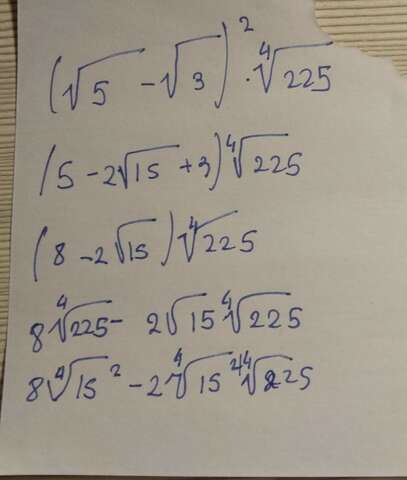 (√5 - √3)² · ∜225
(5 - 2√15 + 3) ∜225
(8 - 2√15) ∜225
8∜225 - 2√15 ∜225
8∜15² - 2∜15² ∜225